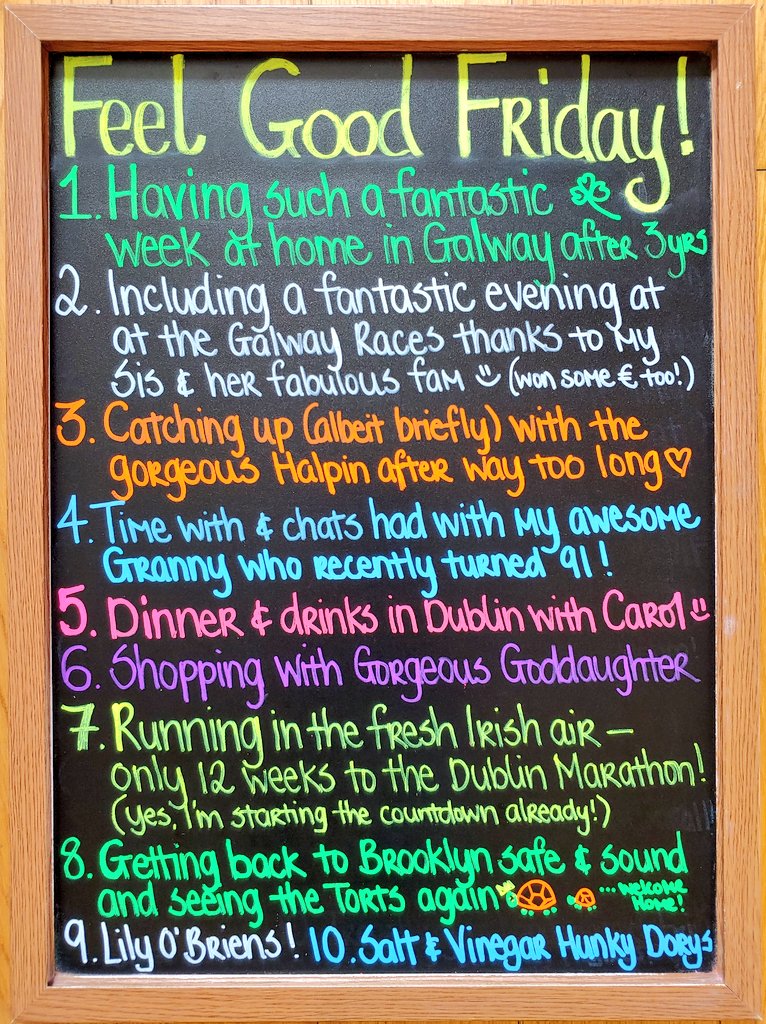 Feel Good Friday!
1. Having such a fantastic
week at home in Galway after 3yrs
2. Including a fantastic evening at
at the Galway Races thanks to my
Sis & her fabulous fam (won some € too!)
3. Catching up (albeit briefly) with the
gorgeous Halpin after way too long
4. Time with & chats had with my awesome
Granny who recently turned 91!
5. Dinner & drinks in Dublin with Carol
6. Shopping with Gorgeous Goddaughter
7. Running in the fresh Irish air –
only 12 weeks to the Dublin Marathon!
(yes, I'm starting the countdown already!)
8. Getting back to Brooklyn safe & sound
and seeing the Torts again ...welcome
Home!
9. Lily O'Briens! 10. Salt & Vinegar Hunky Dorys